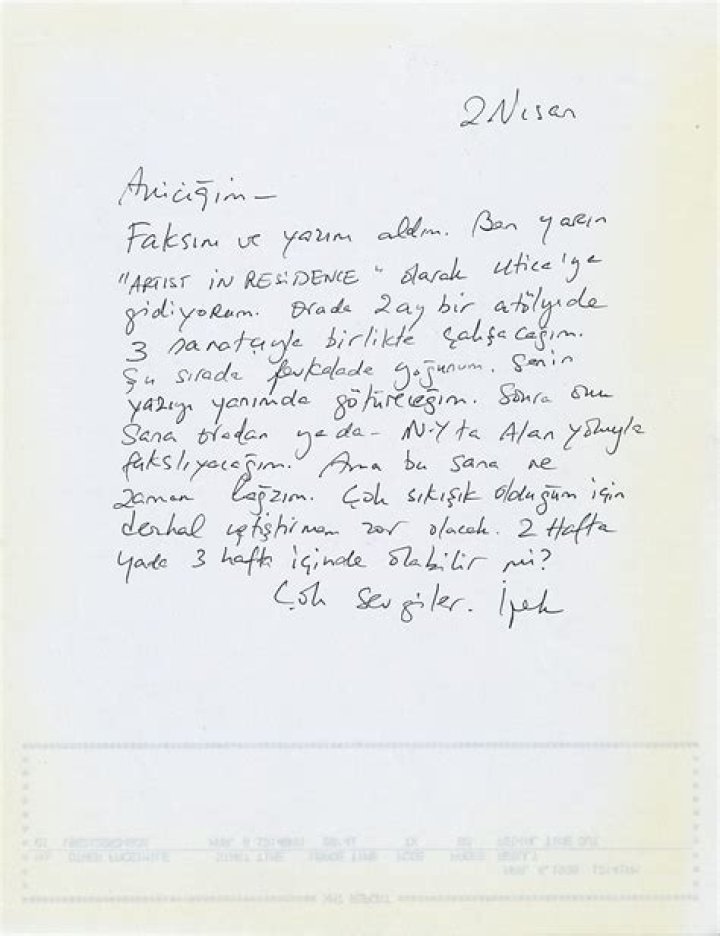 2 Nisan
Aniciğim –
Faksını ve yazını aldım. Ben yarın
"ARTIST İN RESİDENCE" olarak Utica'ya
gidiyorum. Orada 2 ay bir atölyede
3 sanatçıyla birlikte çalışacağım.
Şu sırada fevkalade yoğunum. Senin
yazıyı yanımda götüreceğim. Sonra onu
Sana oradan yada – N.Y ta Alan yoluyla
fakslıyacağım. Ama bu sana ne
zaman lağzım. Çok sıkışık olduğum için
derhal yetiştirmem zor olacak. 2 Hafta
yada 3 hafta içinde olabilir mi?
Çok Sevgiler. İpek